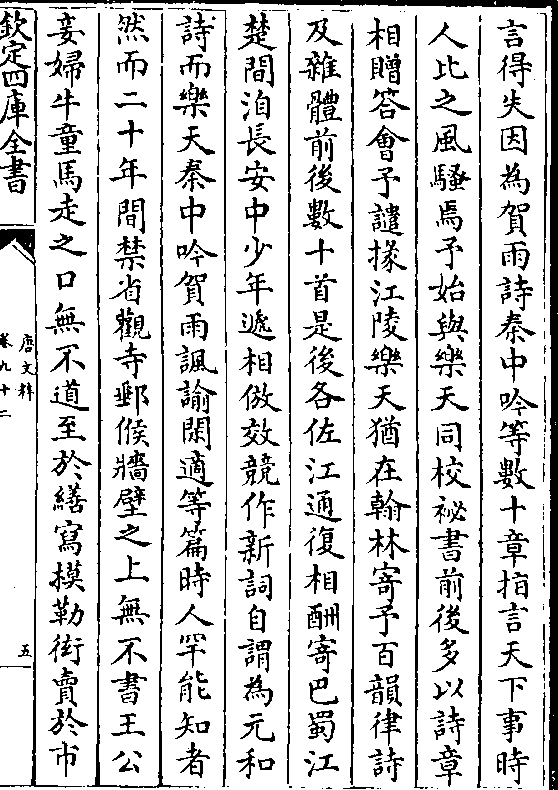 言得失因為賀雨詩秦中吟等數十章指言天下事時
人比之風騷焉予始與樂天同校祕書前後多以詩章
相贈答會予譴掾江陵樂天猶在翰林寄予百韻律詩
及雜體前後數十首是後各佐江通復相酬寄巴蜀江
楚間洎長安中少年遞相倣效競作新詞自謂為元和
詩而樂天秦中吟賀雨諷諭閑適等篇時人罕能知者
然而二十年間禁省觀寺郵候牆壁之上無不書王公
妾婦牛童馬走之口無不道至於繕寫摸勒衒賣於市
欽定四庫全書
唐文粹
卷九十二
五